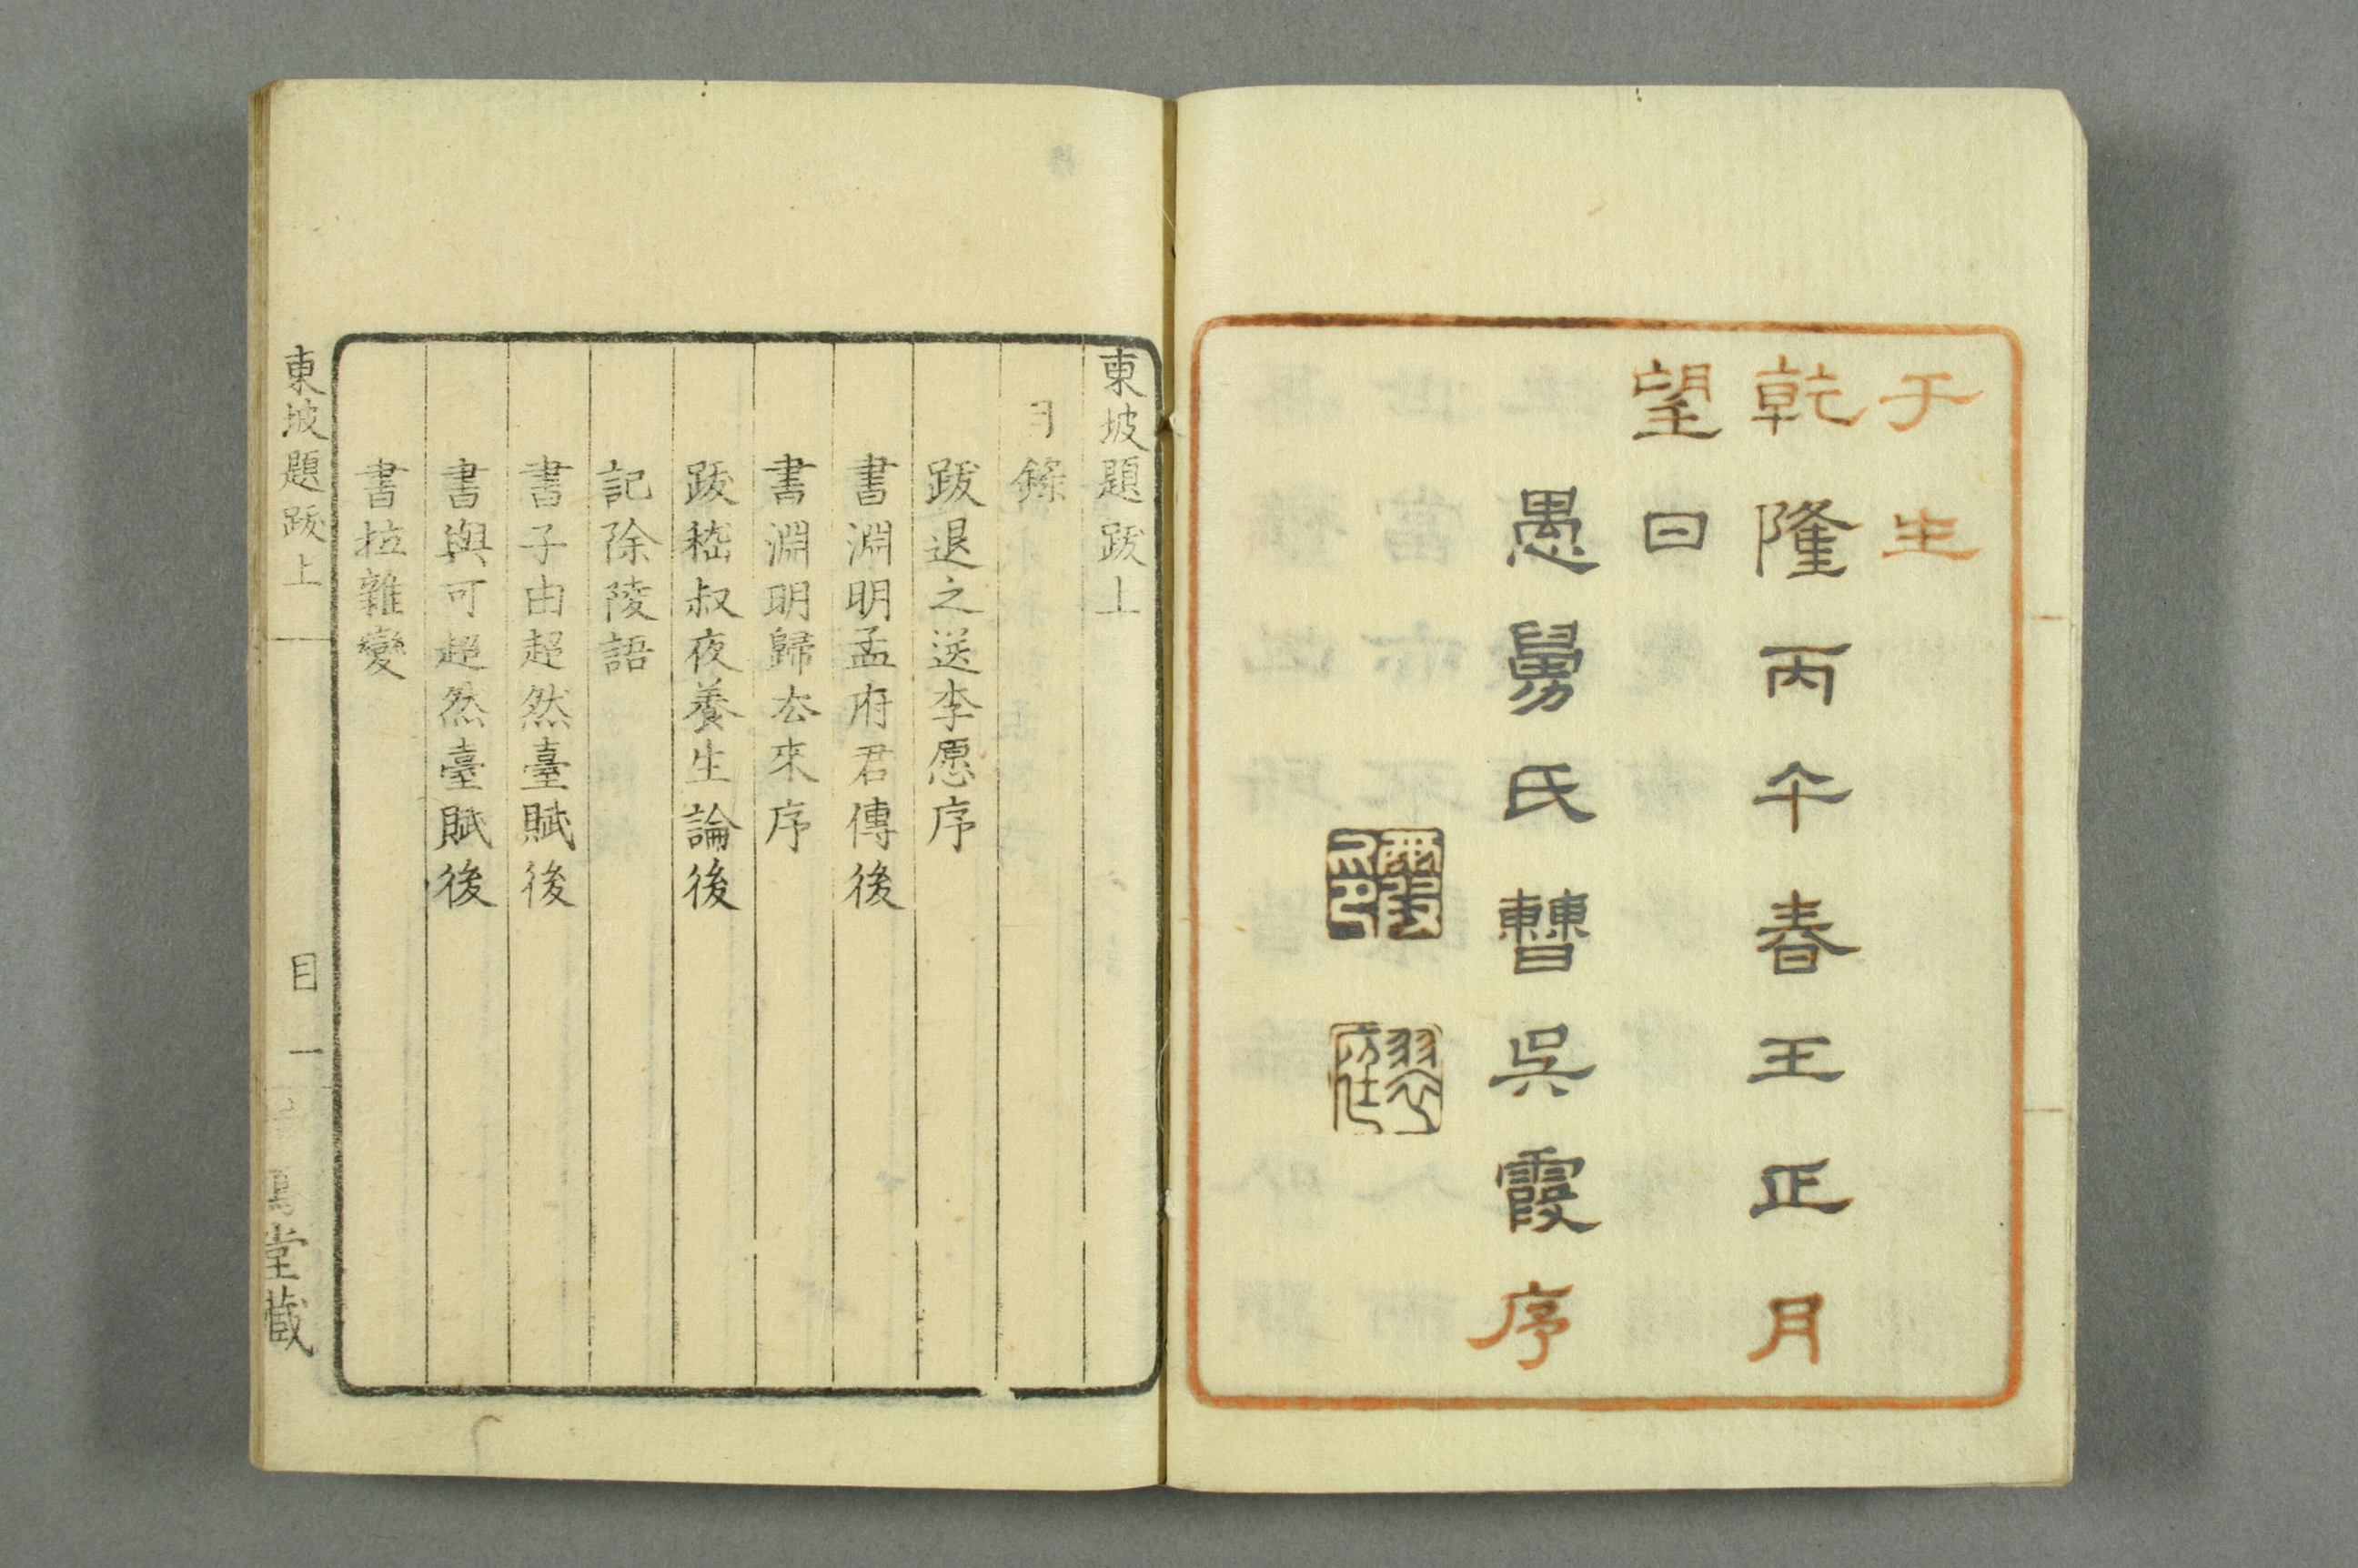 于生
乾隆丙午春王正月
望日
愚舅氏曹吳霞序
東坡題跋上
目錄
跋退之送李愿序
書淵明孟府君傳後
書淵明歸去來序
跋嵇叔夜養生論後
記除陵語
書子由超然臺賦後
書與可超然臺賦後
書拉雜變
東坡題跋上
目一
堂藏